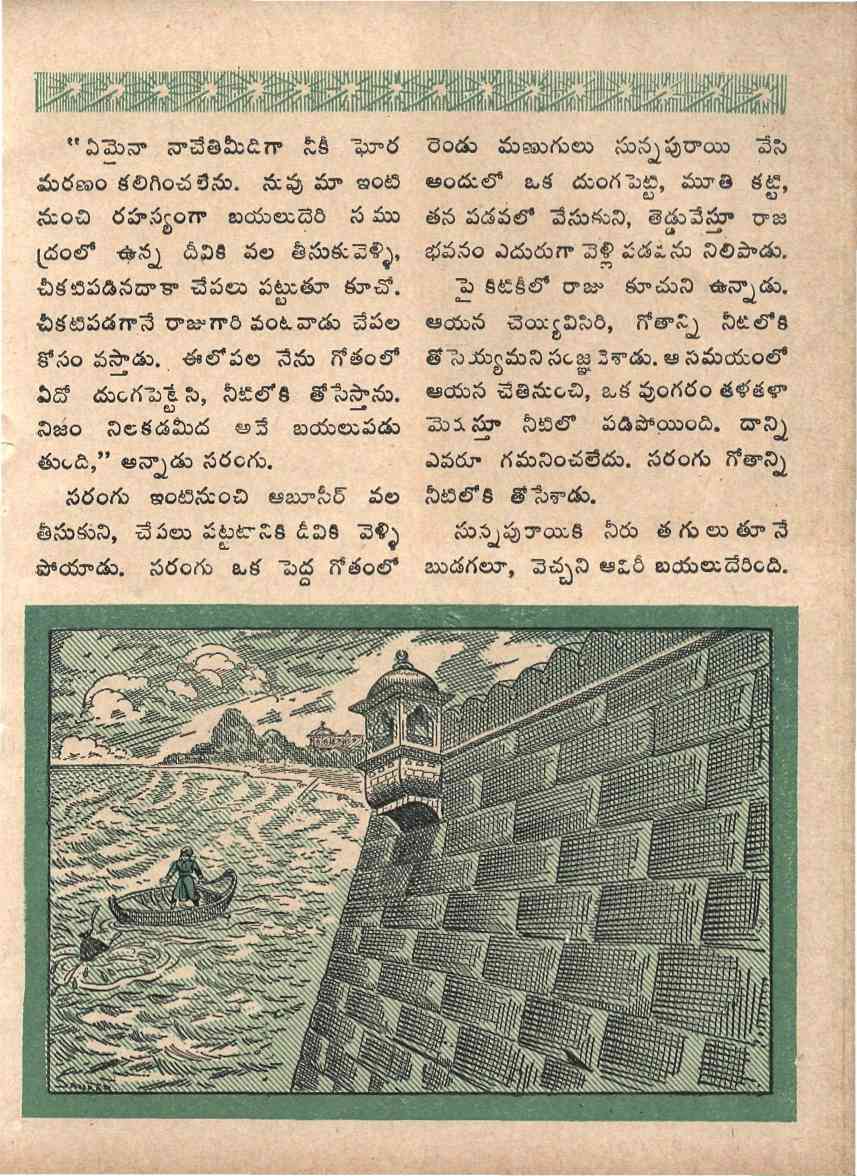 “ఏమైనా నాచేతిమీదిగా నీకీ ఘోర
మరణం కలిగించలేను. నువు మా ఇంటి
నుంచి రహస్యంగా బయలుదేరి సము
ద్రంలో ఉన్న దీవికి వల తీసుకువెళ్ళి,
చీకటిపడినదాకా చేపలు పట్టుతూ కూచో.
చీకటిపడగానే రాజుగారి వంటవాడు చేపల
కోసం వస్తాడు. ఈలోపల నేను గోతంలో
ఏదో దుంగపెట్టేసి, నీటిలోకి తోసేస్తాను.
నిజం నిలకడమీద అవే బయలుపడు
తుంది,” అన్నాడు సరంగు.
సరంగు ఇంటినుంచి ఆబూసీర్ వల
తీసుకుని, చేపలు పట్టటానికి దీవికి వెళ్ళి
పోయాడు. సరంగు ఒక పెద్ద గోతంలో
రెండు మణుగులు సున్నపురాయి వేసి
అందులో ఒక దుంగపెట్టి, మూతి కట్టి,
తన పడవలో వేసుకుని, తెడ్డువేస్తూ రాజ
భవనం ఎదురుగా వెళ్లి పడవను నిలిపాడు.
పై కిటికీలో రాజు కూచుని ఉన్నాడు.
ఆయన చెయ్యివిసిరి, గోతాన్ని నీటిలోకి
తోసెయ్యమని సంజ్ఞచేశాడు. ఆ సమయంలో
ఆయన చేతినుంచి, ఒక వుంగరం తళతళా
మెరుస్తూ నీటిలో పడిపోయింది. దాన్ని
ఎవరూ గమనించలేదు. సరంగు గోతాన్ని
నీటిలోకి తోసేశాడు.
సున్నపురాయికి నీరు తగులుతూనే
బుడగలూ, వెచ్చని ఆవిరీ బయలుదేరింది.
SANKAR